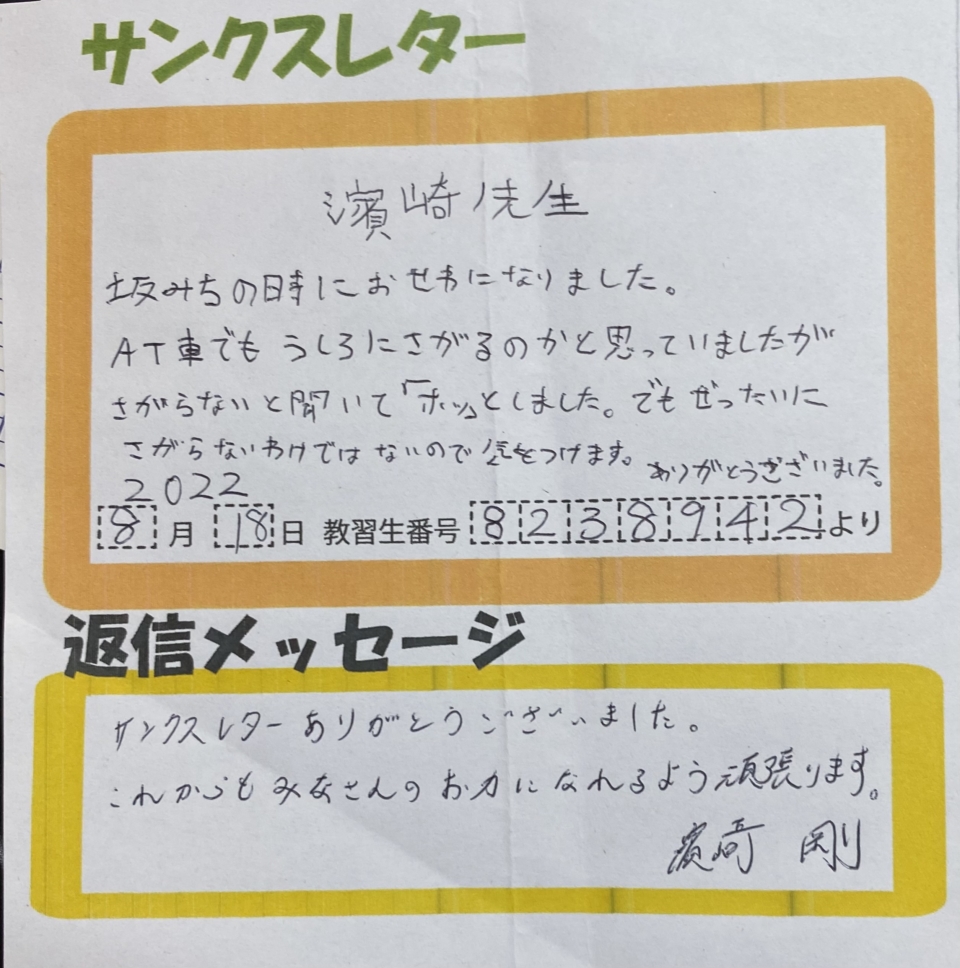 サンクスレター
濱崎先生
坂みちの時におせわになりました。
AT車でもうしろにさがるのかと思っていましたが
さがらないと聞いて「ホッ」としました。でもぜったいに
さがらないわけではないので気をつけます。
ありがとうございました。
2022
8月18日 教習生番号 8238942より
返信メッセージ
サンクスレターありがとうございました。
これからもみなさんのお力になれるよう頑張ります。
濱崎 剛